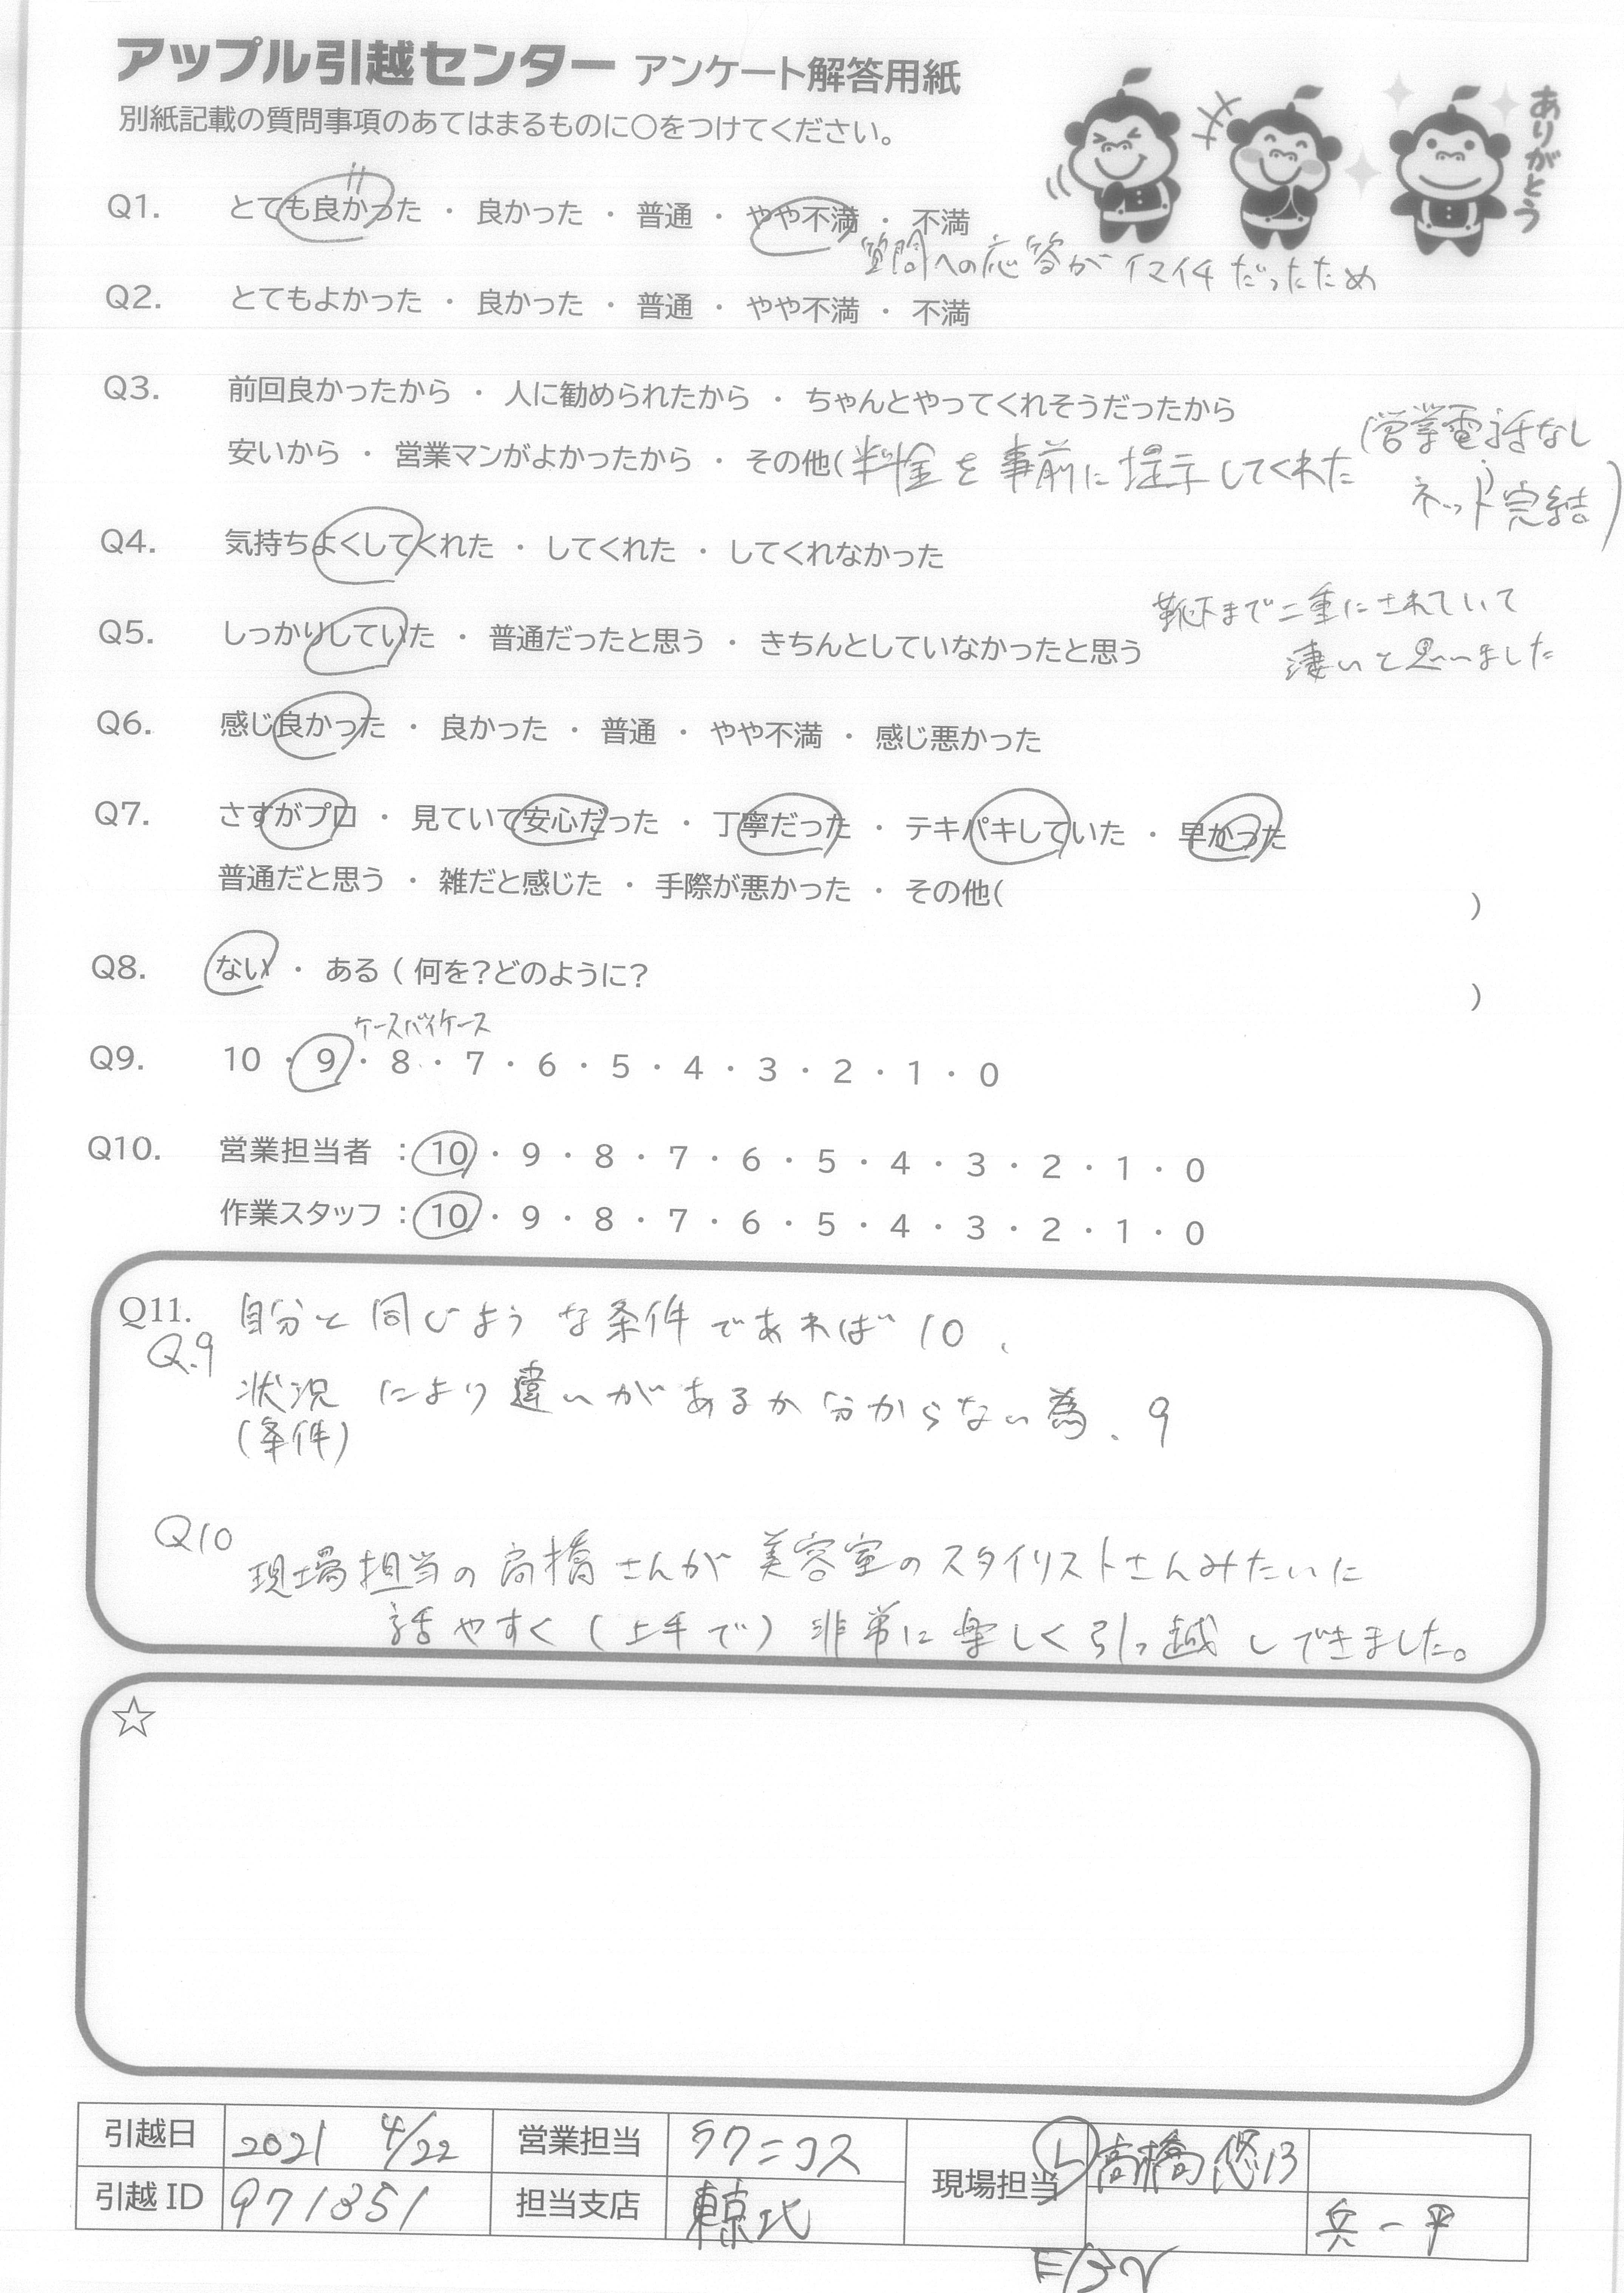 アップル引越センター アンケート解答用紙
別紙記載の質問事項のあてはまるものに○をつけてください。
ありがとう
Q1. とても良かった ・ 良かった ・ 普通 ・ やや不満 ・ 不満
質問への応答がイマイチだったため
Q2. とてもよかった ・ 良かった ・ 普通 ・ やや不満 ・ 不満
Q3. 前回良かったから ・ 人に勧められたから ・ ちゃんとやってくれそうだったから
安いから ・ 営業マンがよかったから ・ その他( 料金を事前に提示してくれた
(営業電話なし
ネット完結)
Q4. 気持ちよくしてくれた ・ してくれた ・ してくれなかった
Q5. しっかりしていた ・ 普通だったと思う ・ きちんとしていなかったと思う
靴下まで二重にされていて
凄いと思いました
Q6. 感じ良かった ・ 良かった ・ 普通 ・ やや不満 ・ 感じ悪かった
Q7. さすがプロ ・ 見ていて安心だった ・ 丁寧だった ・ テキパキしていた ・ 早かった
普通だと思う ・ 雑だと感じた ・ 手際が悪かった ・ その他( )
Q8. ない ・ ある ( 何を?どのように? )
ケースバイケース
Q9. 10 ・ 9 ・ 8 ・ 7 ・ 6 ・ 5 ・ 4 ・ 3 ・ 2 ・ 1 ・ 0
Q10. 営業担当者 : 10 ・ 9 ・ 8 ・ 7 ・ 6 ・ 5 ・ 4 ・ 3 ・ 2 ・ 1 ・ 0
作業スタッフ : 10 ・ 9 ・ 8 ・ 7 ・ 6 ・ 5 ・ 4 ・ 3 ・ 2 ・ 1 ・ 0
Q11. 自分と同じような条件であれば10、
Q.9
状況により違いがあるか分からない為、9
(条件)
Q10
現場担当の高橋さんが美容室のスタイリストさんみたいに
話やすく(上手で)非常に楽しく引っ越しできました。
☆
引越日 2021 4/22 営業担当 ラクニコス 現場担当 L 高橋悠13
引越ID 971351 担当支店 東京北 兵一平